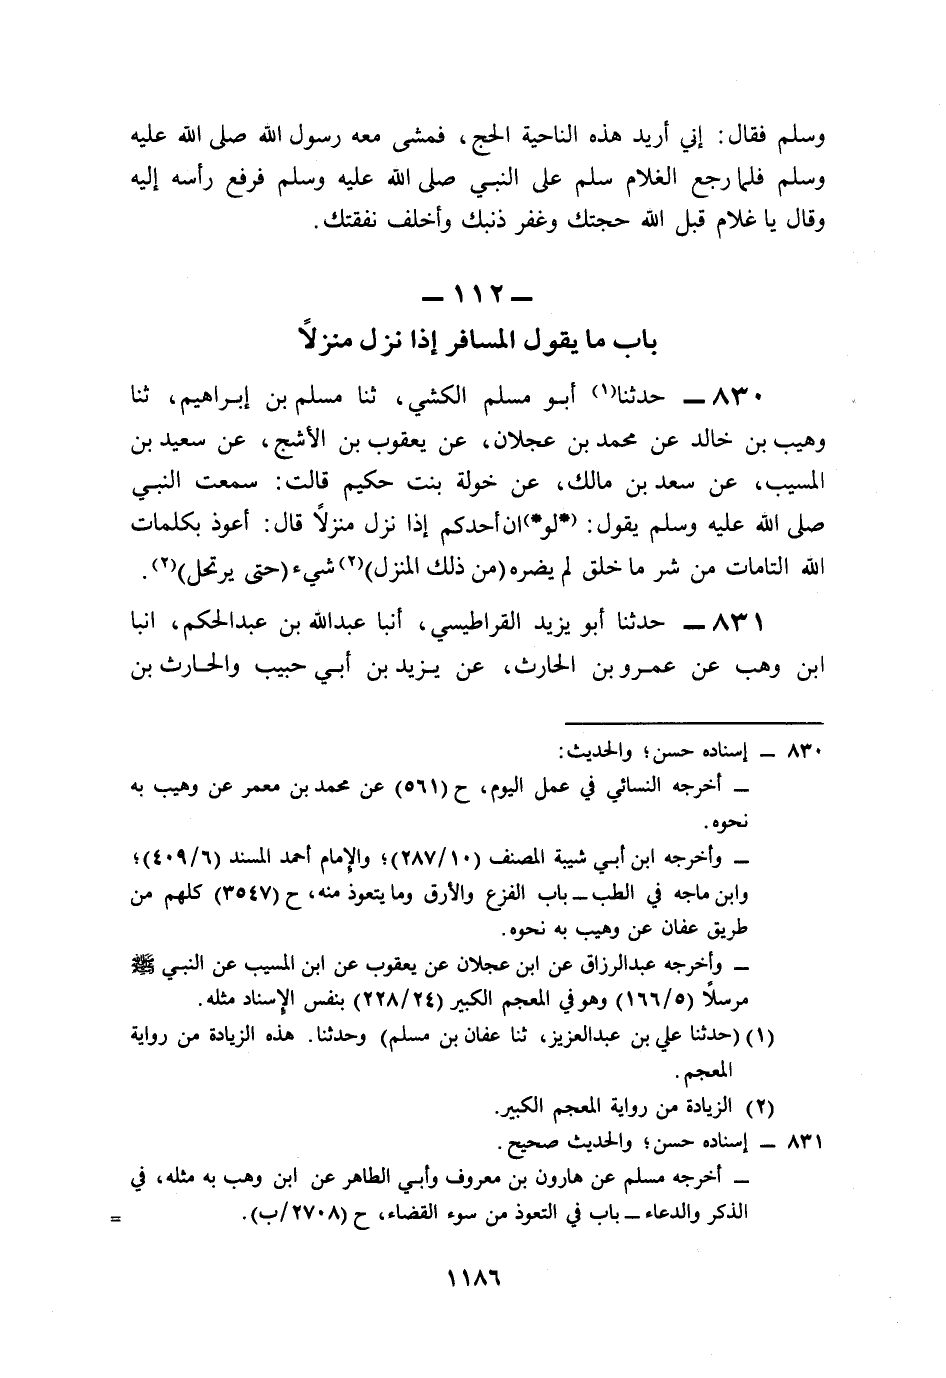 وسلم فقال: إني أريد هذه الناحية الحج، فمشى معه رسول الله صلى الله عليه
وسلم فلما رجع الغلام سلم على النبي صلى الله عليه وسلم فرفع رأسه إليه
وقال يا غلام قبل الله حجتك وغفر ذنبك وأخلف نفقتك.
ــ ١١٢ ــ
باب ما يقول المسافر إذا نزل منزلاً
٨٣٠ ــ حدثنا(١) أبو مسلم الكشي، ثنا مسلم بن إبراهيم، ثنا
وهيب بن خالد عن محمد بن عجلان، عن يعقوب بن الأشج، عن سعيد بن
المسيب، عن سعد بن مالك، عن خولة بنت حكيم قالت: سمعت النبي
صلى الله عليه وسلم يقول: (*لو*)ان أحدكم إذا نزل منزلاً قال: أعوذ بكلمات
الله التامات من شر ما خلق لم يضره (من ذلك المنزل)(٢) شيء (حتى يرتحل)(٢).
٨٣١ ــ حدثنا أبو يزيد القراطيسي، أنبا عبدالله بن عبدالحكم، انبا
ابن وهب عن عمرو بن الحارث، عن يزيد بن أبي حبيب والحارث بن
٨٣٠ ــ إسناده حسن؛ والحديث:
ــ أخرجه النسائي في عمل اليوم، ح (٥٦١) عن محمد بن معمر عن وهيب به
نحوه.
ــ وأخرجه ابن أبي شيبة المصنف (٢٨٧/١٠)؛ والإمام أحمد المسند (٤٠٩/٦)؛
وابن ماجه في الطب ــ باب الفزع والأرق وما يتعوذ منه، ح (٣٥٤٧) كلهم من
طريق عفان عن وهيب به نحوه.
ــ وأخرجه عبدالرزاق عن ابن عجلان عن يعقوب عن ابن المسيب عن النبي ﷺ
مرسلاً (١٦٦/٥) وهو في المعجم الكبير (٢٢٨/٢٤) بنفس الإسناد مثله.
(١) (حدثنا علي بن عبدالعزيز، ثنا عفان بن مسلم) وحدثنا. هذه الزيادة من رواية
المعجم.
(٢) الزيادة من رواية المعجم الكبير.
٨٣١ ــ إسناده حسن؛ والحديث صحيح.
ــ أخرجه مسلم عن هارون بن معروف وأبي الطاهر عن ابن وهب به مثله، في
الذكر والدعاء ــ باب في التعوذ من سوء القضاء، ح (٢٧٠٨/ب). =
١١٨٦